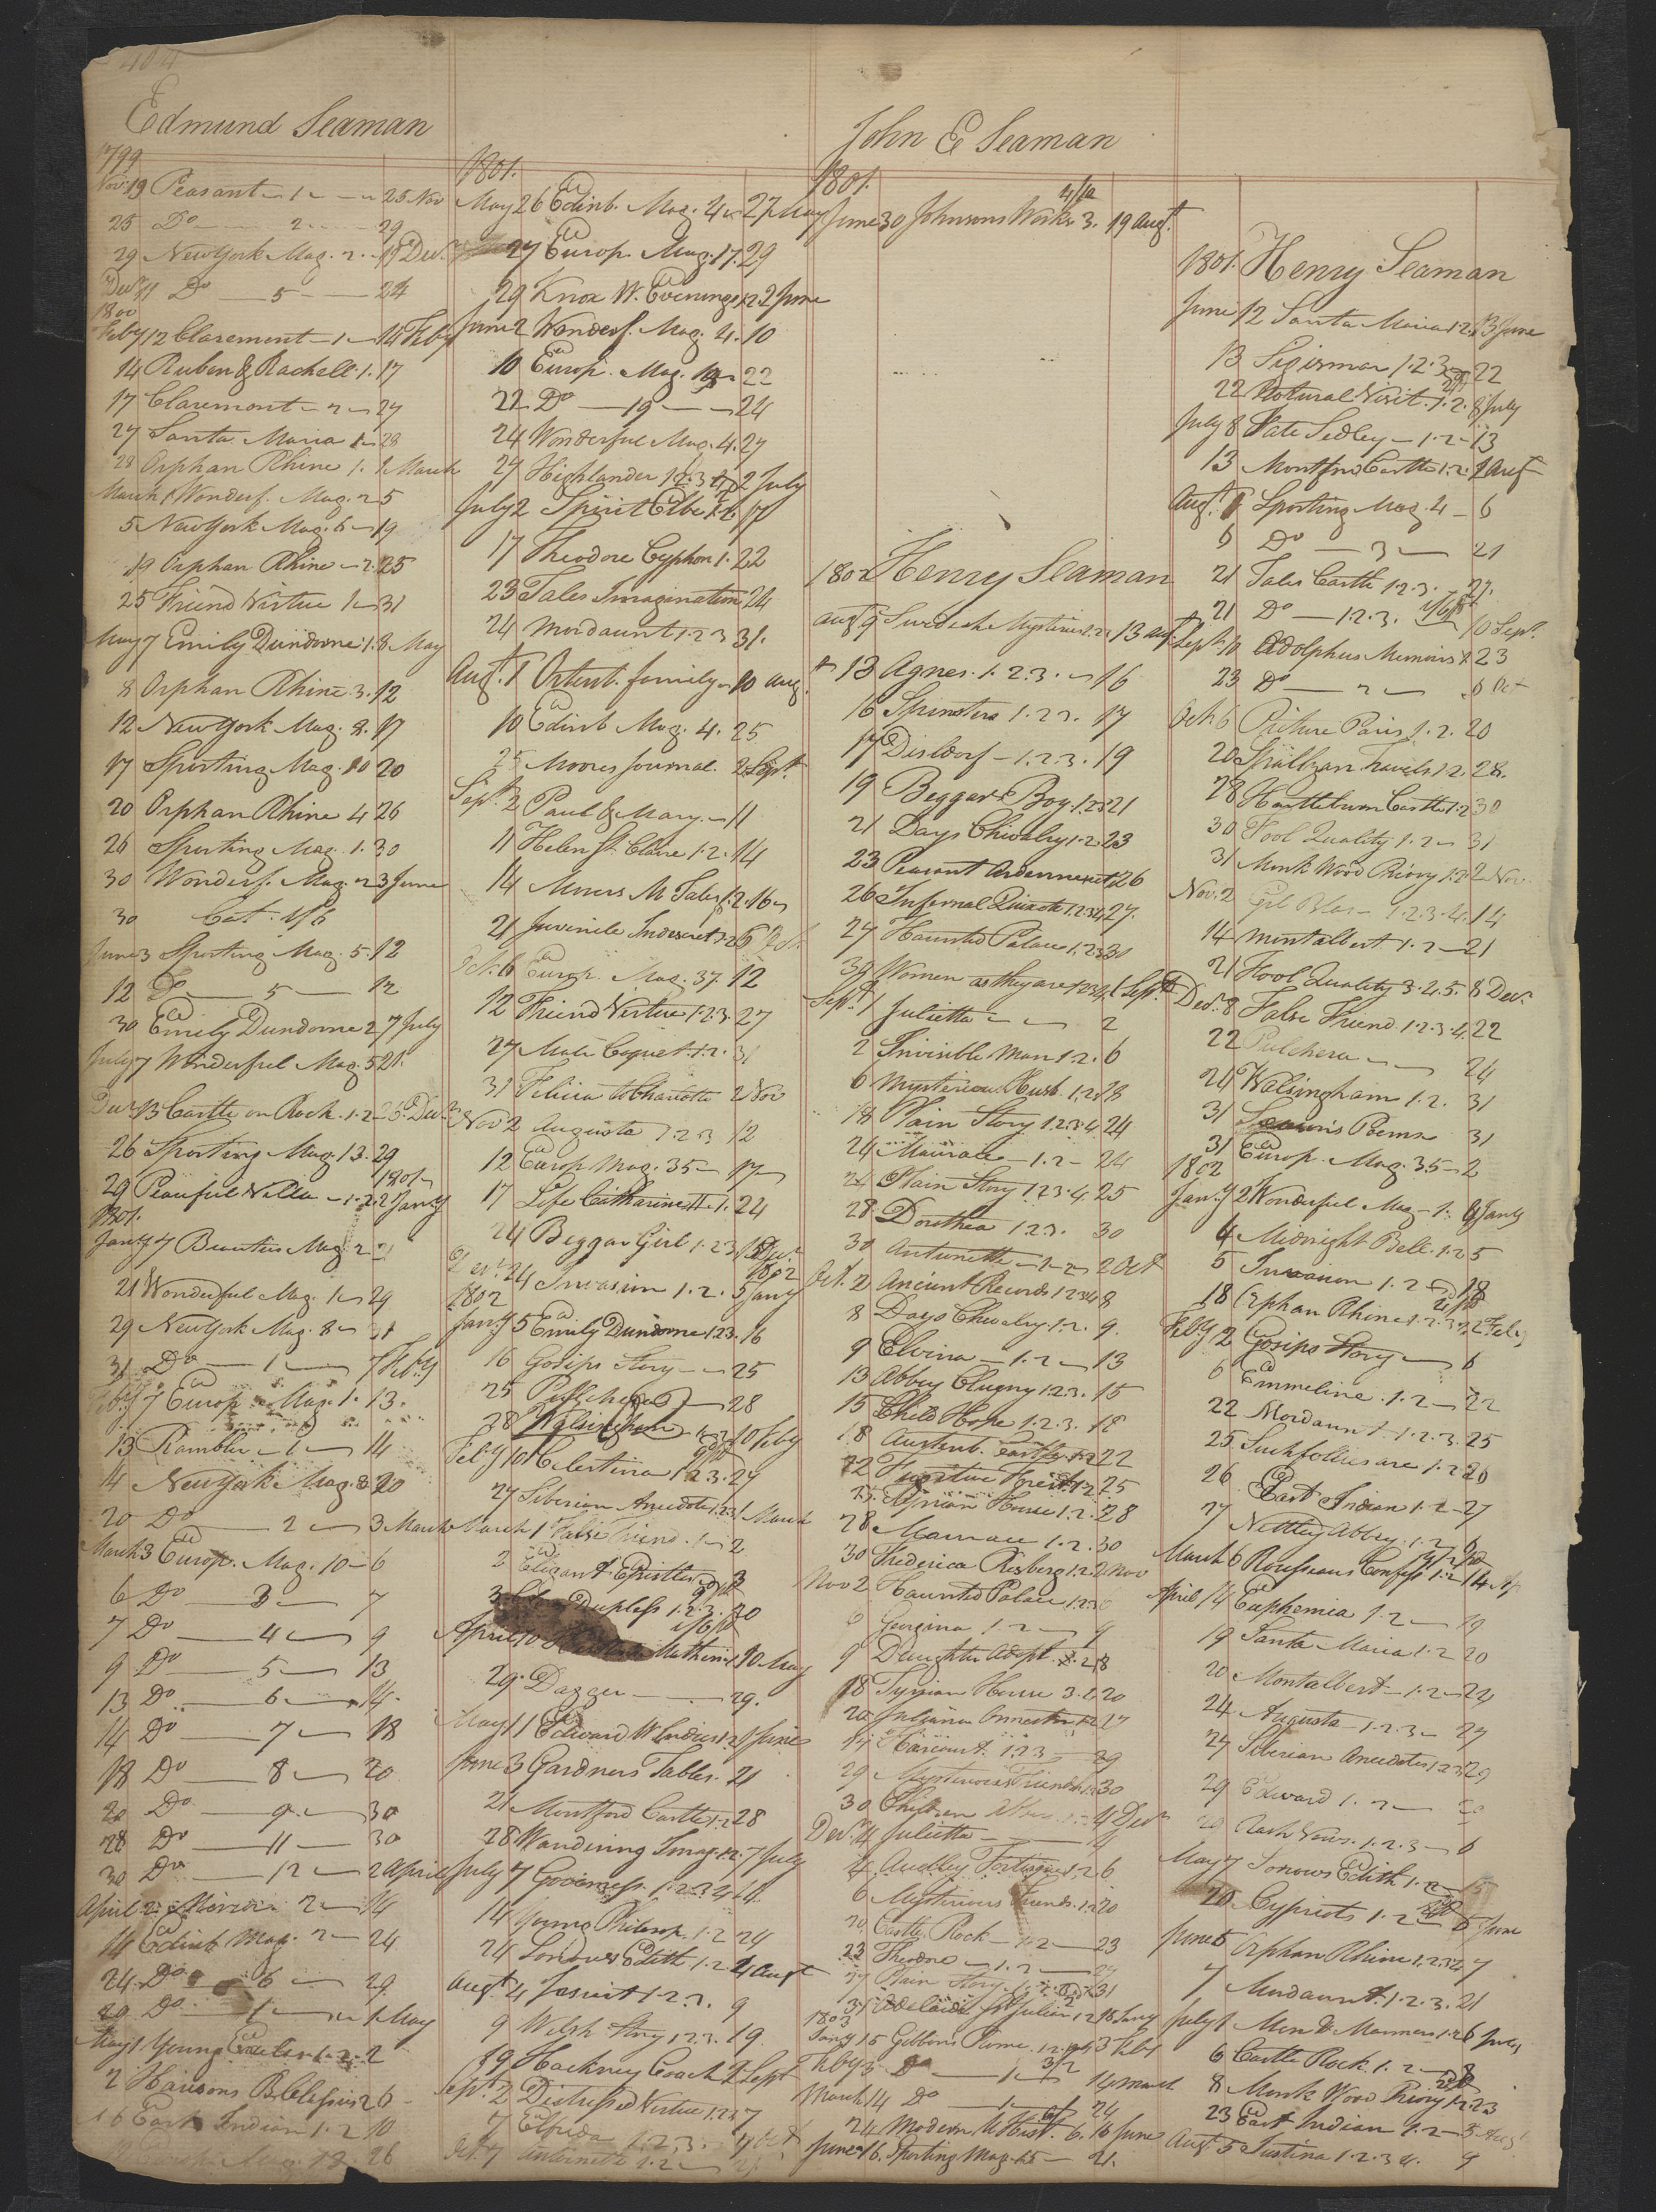 404
Edmund Seaman
1799
Nov. 19 Peasant - 1 - 25 Nov
25 Do - 2 - 29
29 NewYork Mag. 2. 19 Decr
Decr 19 Do - 5 - 24
1800
Feby 12 Claremont - 1 - 14 Feby
14 Ruben & Rachell. 1. 17
17 Claremont - 2 - 27
27 Santa Maria 1 - 28
28 Orphan Rhine 1. 1 March
March 1 Wonderf. Mag. 2 5
5 NewYork Mag. 6 - 19
19 Orphan Rhine - 2. 25
25 Friend Virtue 1 - 31
May 7 Emily Dundorne 1. 8 May
8 Orphan Rhine. 3. 12
12 NewYork Mag. 8. 17
17 Sporting Mag. 10 20
20 Orphan Rhine 4 26
26 Sporting Mag. 1. 30
30 Wonderf. Mag. 2 3 June
30 Cat. 1/6
June 3 Sporting Mag. 5. 12
12 Do - 5 - 12
30 Emily Dundorne 2 7 July
July 7 Wonderful Mag. 5 21.
Decr 13 Castle on Rock. 1.2 - 26 Decr
26 Sporting Mag. 13. 29
1801
29 Peaceful Villa - 1.2. 2 Jany
1801.
Jany 7 Beauties Mag. 2 21
21 Wonderful Mag. 1 - 29
29 NewYork Mag. 8 - 31
31 Do - 1 - 7 Feby
Feby 7 Europ. Mag. 1. 13.
13 Rambler - 1 - 14
14 NewYork Mag. 8 20
20 Do - 2 - 3 March
March 3 Europ. Mag. 10 - 6
6 Do - 3 - 7
7 Do - 4 - 9
9 Do - 5 - 13
13 Do - 6 - 14.
14 Do - 7 - 18
18 Do - 8 - 20
20 Do - 9 - 30
28 Do - 11 - 30
30 Do - 12 - 2 April
April 2 2 - 14
14 Edinb Mag. 2 - 24
24. Do - 6 - 29.
29 Do - 1 - 1 May
May 1 Young 1.2. 2
2 Harisons 2 6
6 East Indian 1.2 10
Mag. 18. 26
1801.
May 26 Edinb. Mag. 4 - 27 May
27 Europ. Mag. 17. 29
29 Knox W. Evenings 1.2 2 June
June 2 Wonderf. Mag. 4. 10
10 Europ. Mag. 19 - 22
22 Do - 19 - 24
24 Wonderful Mag. 4. 27
27 Highlander 1.2.3 2 July
July 2 Spirit Elbe 1.2 17
17 Theodore Cyphon 1. 22
23 Tales Imagination 24
24 Mordaunt 1.2.3 31.
Augt 1 Ortenb. family - 10 Aug.
10 Edinb Mag. 4. 25
25 Moores Journal. 2 Sept.
Sept 2 Paul & Mary. - 11
11 Helen St. Clare 1.2. 14
14 Moors M Tales 1.2. 16
21 Juvenile Indiscret 1.2 6 Oct.
Oct. 6 Europ. Mag. 37. 12
12 Friend Virtue 1.2.3. 27
27 Male Coquet. 1.2. 31
31 Felicia to Charlotte 2 Nov
Nov 2 Augusta 1 2 3 12
12 Europ Mag. 35 - 17
17 Life Catharine II. 1. 24
24 Beggar Girl 1.2 3 13 Decr
1802
Decr 24 Invasion 1.2. 5 Jany
1802
Jany 5 Emily Dundorne 1.2.3. 16
16 Gosips Story - 25
25 Pulchera - 28
28 Walsingham 1.2 10 Feby
Feby 10 Celestina 1.2.3. 27
27 Siberian Anecdote 1.2.3 1 March
March 1 False Friend. 1 - 2
2 Elegant Epistles 3
3 Dupless 1.2.3. 30
April 10 Mathew. 1 10 May
29. Dagger - 29.
May 11 Edward W Indies 1.2 1 June
June 3 Gardners Tables. 21
21 Montford Castle 1.2 28
28 Wandering Imag. 1.2. 7 July
July 7 Governess. 1.2.3.4 14.
14 Young Philosop. 1.2 24
24 Sorrows Edith 1.2 4 Augt
Augt 4 Jesuit 1.2.3. 9
9 Welsh Story 1.2.3. 19.
19 Hackney Coach 2 Sept
Sept. 2 Distressed Virtue 1.2.3 7
7 Elfrida 1.2.3. 7 Oct
Oct. 7 Antoinette 1.2 -
John E Seaman
1801.
June 30 Johnsons Works 3. 19 Augt.
1802 Henry Seaman
Augt 9 Swedish Mysteries 1.2. 13 Augt
13 Agnes. 1.2.3. - 16
16 Spinsters 1.2.3. 17
17 Disldorf - 1.2.3. 19
19 Beggar Boy. 1.2.3 21
21 Days Chivalry 1.2. 23
23 Peasant Ardenne 26
26 Infernal Quixote 1.2.3.4. 27.
27 Haunted Palace 1.2.3 30
30 Women as they are 1.2.3.4. 1 Sept
Sept. 1 Julietta - 2
2 Invisible Man 1.2. 6
6 Mysterious Husb. 1.2. 18
18 Plain Story 1.2.3.4 24
24 - 1.2 - 24
24 Plain Story 1.2.3.4. 25
28 Dorothea 1.2.3. 30
30 Antoinette - 1.2 2 Oct
Oct. 2 Ancient Records 1.2.3.4 8
8 Days Chivalry 1.2. 9.
9 Elvina - 1.2 - 13
13 Abbey Clugny 1.2.3. 15
15 Child Hope 1.2.3. 18
18 Austenb. Castle 1.2 22
22 Fugitive Forest 1.2 25
25. Tyrian House 1.2. 28
28 1.2. 30
30 Frederica Risberg 1.2. 2 Nov
Nov 2 Haunted Palace 1.2.3 6
6 Georgina 1.2 - 9
9 Daughter Adopt. 1.2. 18
18 Tyrian House 3.4 20
20 Juliana Ormeston 1.2 27
27 Harcourt. 1.2.3 - 29
29 Mysterious Friend 1.2 30
30 Children Abbey 4 Decr
Decr 4 Julietta - 4
4 Audley Fortescue 1.2. 6
6 Mysterious Friends. 1.2 20
20 Castle Rock - 1.2 - 23
23 Theodore - 1.2 - 27
27 Plain Story 1.2.3 31
31 Adelaide St Julian 1.2 15 Jany
1803
Jany 15 Gibbons Rome. 3 Feby
Feby 3 Do - 1 - 14 March
March 14 Do - 1 - 24
24 Modern U Hist. 6. 16 June
June 16. Sporting Mag. 15 - 21.
1801. Henry Seaman
June 12 Santa Maria 1.2. 13 June
13 Sigismar 1.2.3 22
22 Natural Visit. 1.2. 8 July
July 8 Kate Sedley - 1.2 - 13
13 Montford Castle 1.2. 1 Augt
Augt 1 Sporting Mag. 4 - 6
6 Do - 3 - 21
21 Tales Castle 1.2.3. 21.
21 Do - 1.2.3. 10 Sept.
Sept. 10 Adolphus Memoirs 1. 23
23 Do - 2 - 6 Oct
Oct. 6 Picture Paris 1.2. 20
20 Spallzan. Travels 1.2. 28.
28 Hartlebourn Castle 1.2 30
30 Fool Quality 1.2 - 31
31 Monk Wood Priory 1.2. 2 Nov
Nov. 2 Gil Blas - 1.2.3.4. 14
14 Montalbert 1.2 - 21
21 Fool Quality 3.4.5. 8 Decr
Decr 8 False Friend. 1.2.3.4. 22
22 Pulchera - 24
24 Walsingham 1.2. 31
31 Poems 31
31 Europ. Mag. 35 - 2
1802
Jany 2 Wonderful Mag - 1. 4 Jany
4 Midnight Bell. 1.2 5
5 Invasion 1.2 18
18 Orphan Rhine 1.2.3. 2 Feby
Feby 2 Gosips Story 6
6 Emmeline. 1.2 - 22
22 Mordaunt - 1.2.3. 25
25 Such follies are 1.2 26
26 East Indian 1.2 - 27
27 Nettley Abbey. 1.2 6
March 6 Rousseaus Confess. 1.2 14 Ap
April 14 Euphemia 1.2 - 19
19 Santa Maria 1.2 20
20 Montalbert - 1.2 - 24
24 Augusta - 1.2.3 - 27
27 Siberian Anecdotes 1.2.3 29
29 Edward 1.2 - 29
29 Rash Vows. 1.2.3 - 6
May 7 Sorrows Edith 1.2 - 15
20 Cypriots 1.2 - 5 June
June 5 Orphan Rhine 1.2.3.4 7
7 Mordaunt. 1.2.3. 21
July 1 Men & Manners 1.2. 6 July
6 Castle Rock. 1.2 - 8
8 Monk Wood Priory 1.2. 23
23 East Indian 1.2 - 5 Augt
Augt 5 Justina 1.2.3 4. 9